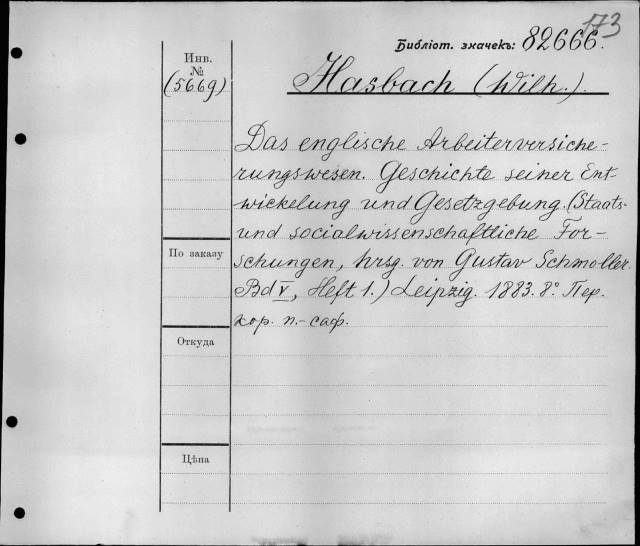 173
Библіот. значекъ: 82666.
Инв.
№
(5669)
Hasbach (Wilh.).
Das englische Arbeiterversiche-
rungswesen. Geschichte seiner Ent-
wickelung und Gesetzgebung. (Staats-
und socialwissenschaftliche For-
schungen, hrsg. von Gustav Schmoller.
Bd V, Heft 1.) Leipzig. 1883. 8° Пер.
кор. п.-саф.
По заказу
Откуда
Цѣна